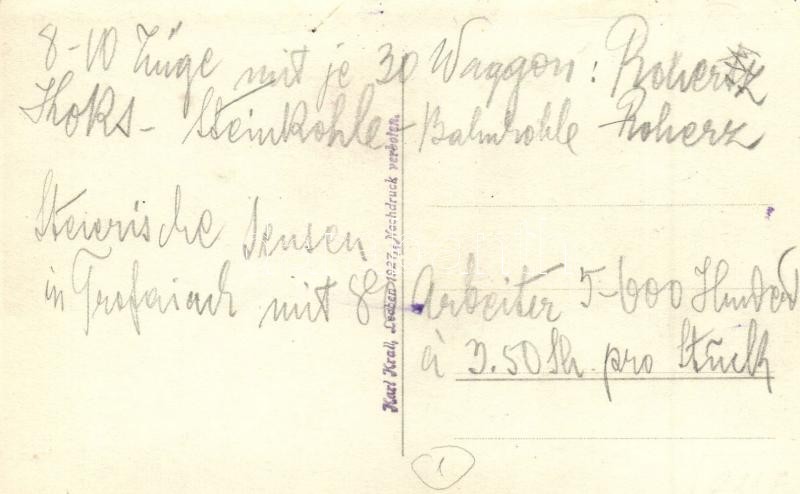 8-10 Züge mit je 30 Waggon: Roherz
Koks- Steinkohle- Bahnkohle Roherz
Steierische Sensen
in Trofaiach mit 80 Arbeiter 5-600 Hunderd
à 3.50 Sh. pro Stück
Karl Krall, Leoben 1927, Nachdruck verboten.
1